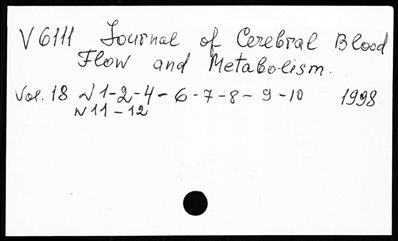 V6111 Journal of Cerebral Blood
Flow and Metabolism.
Vol. 18 N 1-2-4-6-7-8-9-10 1998
N 11-12